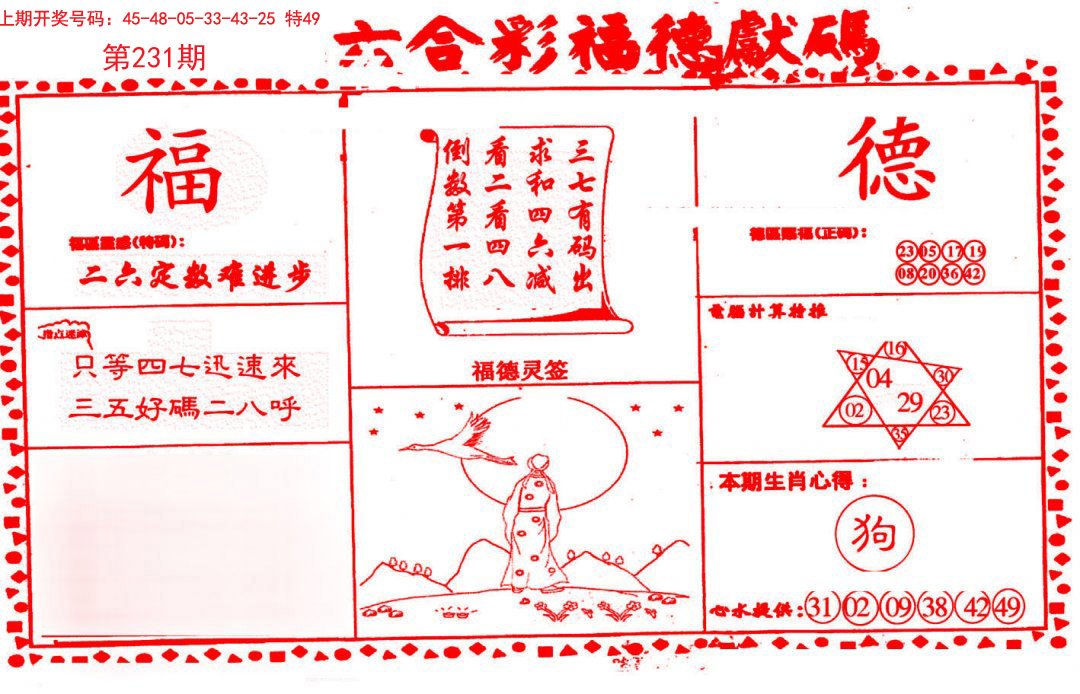 上期开奖号码：45-48-05-33-43-25 特49
第231期
六合彩福德獻碼
福
福區靈感(特碼)：
二六定数难进步
指点迷津
只等四七迅速來
三五好碼二八呼
三七有码出
求和四六减
看二看四八
倒数第一排
福德灵签
德
德區賜福(正碼)：
23 05 17 19
08 20 36 42
電腦計算特推
16
15
04
30
02
29
23
35
本期生肖心得：
狗
心水提供：31 02 09 38 42 49